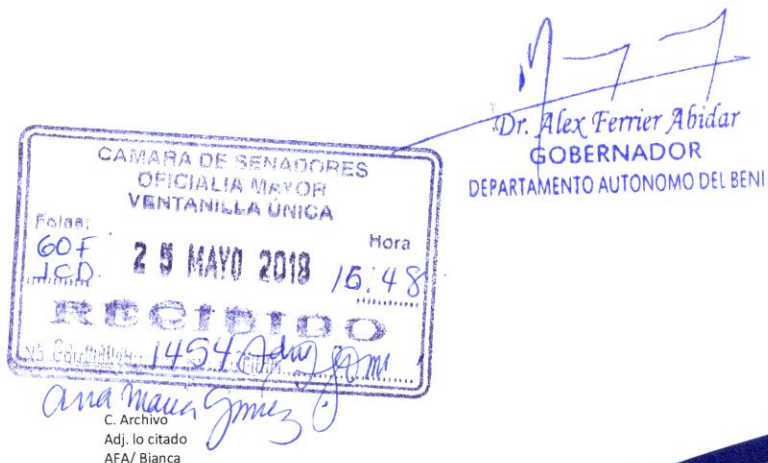 Dr. Alex Ferrier Abidar
GOBERNADOR
DEPARTAMENTO AUTONOMO DEL BENI
CAMARA DE SENADORES
OFICIALIA MAYOR
VENTANILLA ÚNICA
Fojas: Hora
60F
1CD. 25 MAYO 2018 15:48
RECIBIDO
1454
Ana Maria Gómez
C. Archivo
Adj. lo citado
AFA/ Bianca